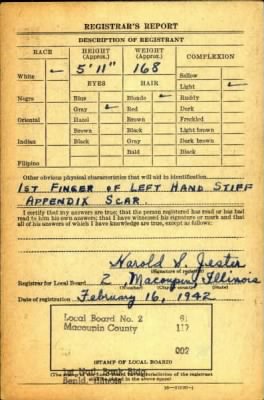 REGISTRAR'S REPORT
DESCRIPTION OF REGISTRANT
RACE HEIGHT (Approx.) WEIGHT (Approx.) COMPLEXION
White ✓ 5' 11" 168 Sallow
EYES HAIR Light ✓
Negro Blue Blonde ✓ Ruddy
Gray ✓ Red Dark
Oriental Hazel Brown Freckled
Brown Black Light brown
Indian Black Gray Dark brown
Bald Black
Filipino
Other obvious physical characteristics that will aid in identification
1ST FINGER OF LEFT HAND STIFF
APPENDIX SCAR.
I certify that my answers are true; that the person registered has read or has had
read to him his own answers; that I have witnessed his signature or mark and that
all of his answers of which I have knowledge are true, except as follows:
Harold S. Jester
(Signature of registrar)
Registrar for Local Board 2 Macoupin, Illinois
(Number) (City or county) (State)
Date of registration February 16, 1942
Local Board No. 2
Macoupin County 117
002
1st Natl. Bank Bldg.
Benld, Illinois
(STAMP OF LOCAL BOARD)
(The stamp of the Local Board having jurisdiction of the registrant
shall be placed in the above space)